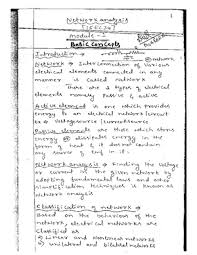 Network analysis
module - 1
Basic Concepts
Introduction
Network → Interconnection of various
electrical elements connected in any
manner is called network
There are 2 types of electrical
elements namely passive & active
Active element is one which provides
energy to an electrical network/circuit
ex → voltage source / current source
Passive elements are those which stores
energy or dissipates energy in the
form of heat & it doesn't contain
any source of emf in it.
Network analysis → Finding the voltage
or current in the given network by
adopting fundamental laws and other
simplification techniques is known as
network analysis
Classification of network →
Based on the behaviour of the
network electrical networks are
classified as
Linear and nonlinear networks
unilateral and bilateral networks